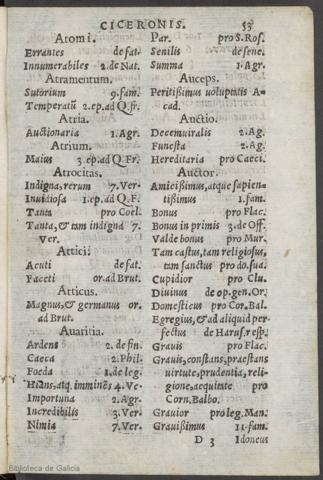 CICERONIS. 53
Atomi.
Errantes de fat.
Innumerabiles 2. de Nat.
Atramentum.
Sutorium 9. fam.
Temperatū 2. ep. ad Q. fr.
Atria.
Auctionaria 1. Agr.
Atrium.
Maius 3. ep. ad Q. Fr.
Atrocitas.
Indigna, rerum 7. Ver.
Inuidiosa 1. ep. ad Q. F.
Tanta pro Coel.
Tanta, & tam indigna 7.
Ver.
Attici:
Acuti de fat.
Faceti or. ad Brut.
Atticus.
Magnus, & germanus or.
ad Brut.
Auaritia.
Ardens 2. de fin.
Caeca 2. Phil.
Foeda 1. de leg.
Hians, atq. imminēs 4. Ve.
Importuna 2. Agr.
Incredibilis 3. Ver.
Nimia 7. Ver.
Par. pro S. Rof.
Senilis de sene.
Summa 1. Agr.
Auceps.
Peritißimus uoluptatis A-
cad.
Auctio.
Decemuiralis 2. Ag.
Funesta 2. Ag.
Hereditaria pro Caeci.
Auctor.
Amicißimus, atque sapien-
tißimus 1. fam.
Bonus pro Flac.
Bonus in primis 3. de Off.
Valde bonus pro Mur.
Tam castus, tam religiosus,
tam sanctus pro do. sua.
Cupidior pro Clu.
Diuinus de op. gen. Or.
Domesticus pro Cor. Bal.
Egregius, & ad aliquid per-
fectus de Haruf. resp.
Grauis pro Flac.
Grauis, constans, praestans
uirtute, prudentia, reli-
gione, aequitate pro
Corn. Balbo.
Grauior pro leg. Man.
Grauißimus 11. fam.
D 3 Idoneus
Biblioteca de Galicia